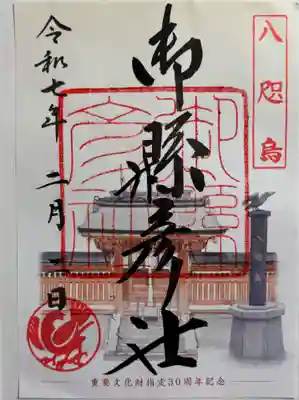 八咫烏
御縣彦社
令和七年 二月一日
重要文化財指定30周年記念